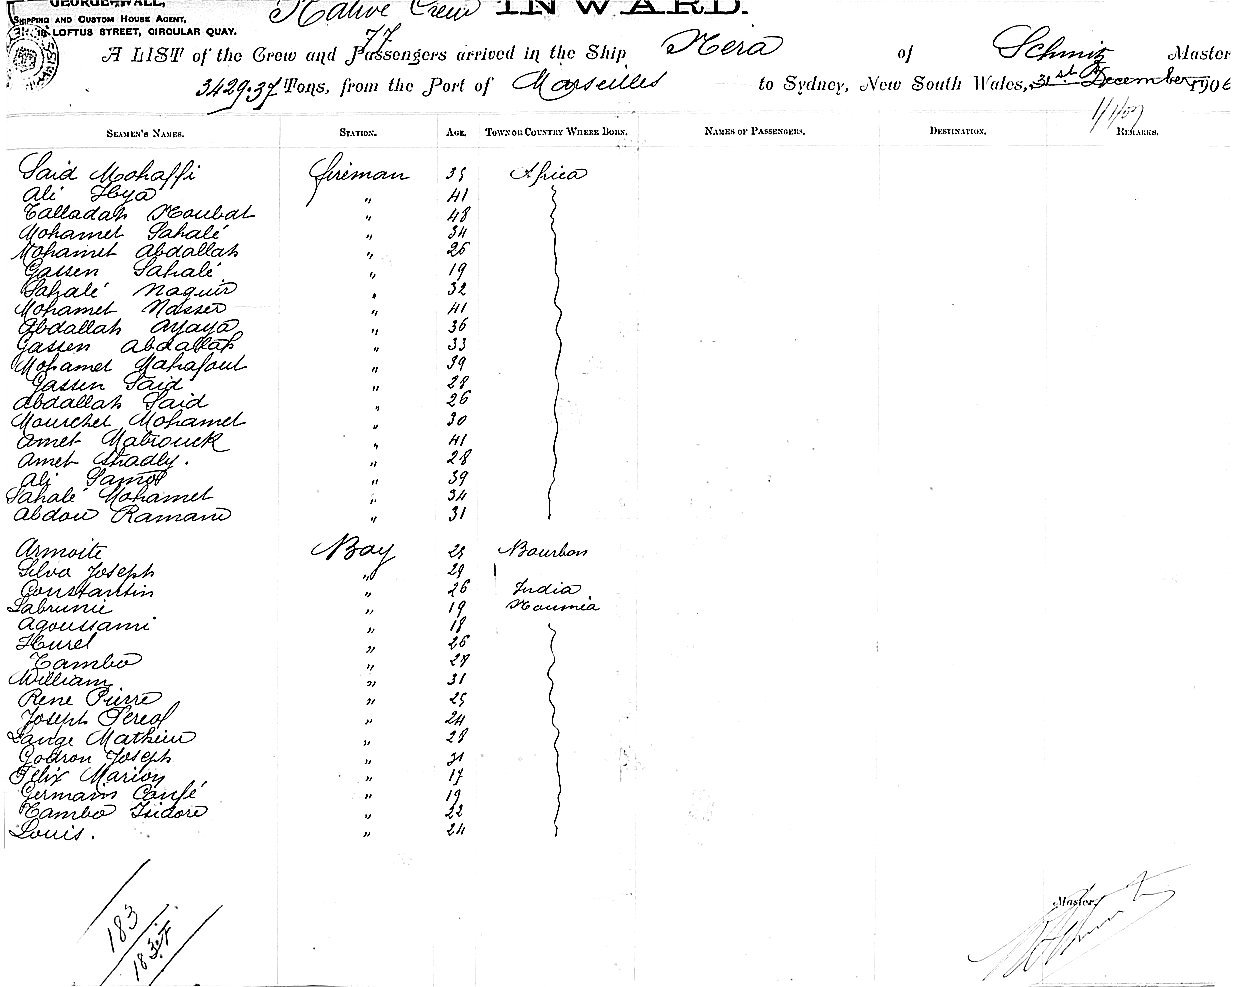 GEORGE WALL,
SHIPPING AND CUSTOM HOUSE AGENT,
LOFTUS STREET, CIRCULAR QUAY.
Native Crew INWARD.
77
A LIST of the Crew and Passengers arrived in the Ship Nera of Schmitz Master
3429.37 Tons, from the Port of Marseilles to Sydney, New South Wales, 31st December 1906
1/1/07
SEAMEN'S NAMES. STATION. AGE. TOWN OR COUNTRY WHERE BORN. NAMES OF PASSENGERS. DESTINATION. REMARKS.
Said Mohaffi fireman 35 Africa
Ali Hya " 41
Talladah Noubat " 48
Mohamet Sahalé " 34
Mohamet Abdallah " 26
Gassen Sahalé " 19
Sahalé Naguir " 32
Mohamet Nasser " 41
Abdallah Ayaya " 36
Gassen Abdallah " 33
Mohamet Mahafoul " 39
Gassen Said " 28
Abdallah Said " 26
Mourchet Mohamet " 30
Amet Mabrouck " 41
Amet Shadly. " 28
Ali Samot " 39
Sahalé Mohamet " 34
Abdou Ramani " 31
Armoite Boy 25 Bourbon
Silva Joseph " 29
Constantin " 26 India
Labrunie " 19 Noumea
Agoussami " 18
Hurel " 26
Tambo " 28
William " 31
Rene Pierre " 25
Joseph " 24
Lange Mathieu " 28
Godron Joseph " 21
Felix Marion " 17
Germain " 19
Tambo Isidore " 22
Louis. " 24
183
Master,
183